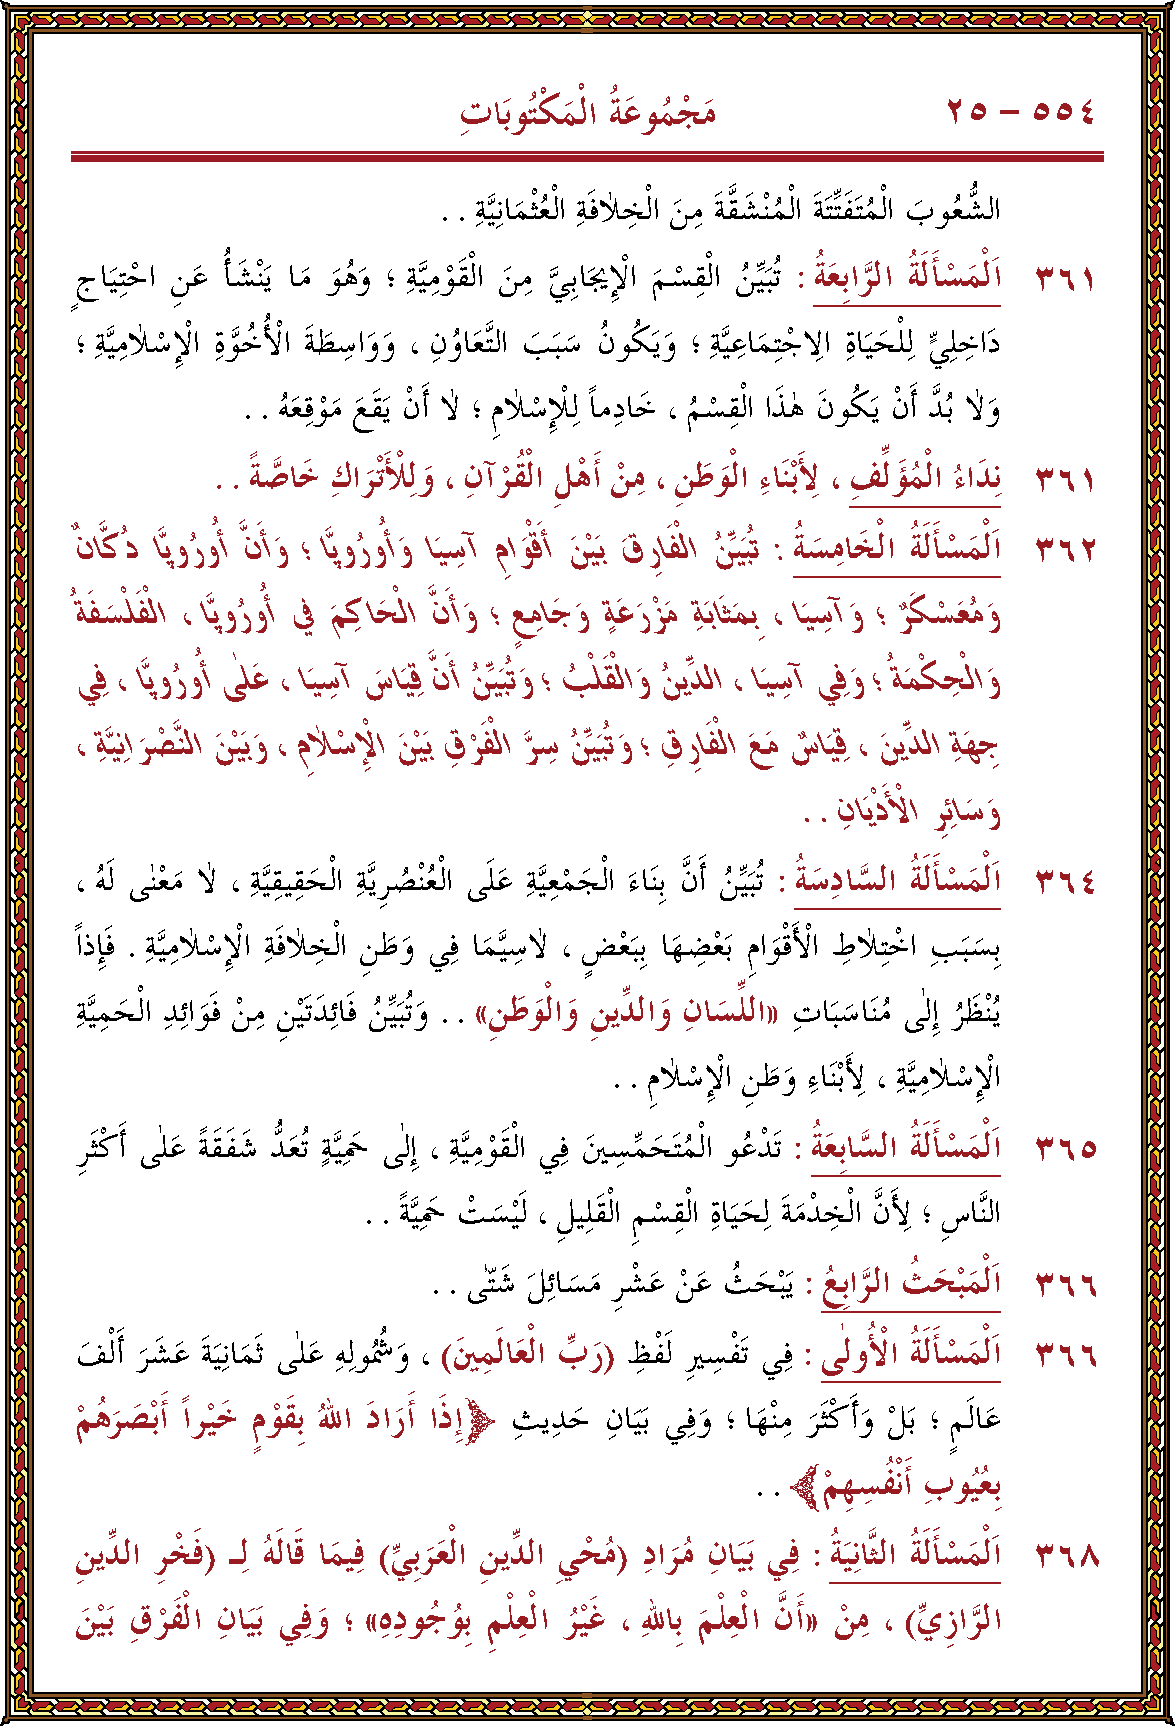 ٥٥٤ – ٢٥ مَجْمُوعَةُ الْمَكْتُوبَاتِ
الشُّعُوبَ الْمُتَفَتِّتَةَ الْمُنْشَقَّةَ مِنَ الْخِلَافَةِ الْعُثْمَانِيَّةِ . .
٣٦١ اَلْمَسْأَلَةُ الرَّابِعَةُ : تُبَيِّنُ الْقِسْمَ الْإِيجَابِيَّ مِنَ الْقَوْمِيَّةِ ؛ وَهُوَ مَا يَنْشَأُ عَنِ احْتِيَاجٍ
دَاخِلِيٍّ لِلْحَيَاةِ الِاجْتِمَاعِيَّةِ ؛ وَيَكُونُ سَبَبَ التَّعَاوُنِ ، وَوَاسِطَةَ الْأُخُوَّةِ الْإِسْلَامِيَّةِ ؛
وَلَا بُدَّ أَنْ يَكُونَ هٰذَا الْقِسْمُ ، خَادِماً لِلْإِسْلَامِ ؛ لَا أَنْ يَقَعَ مَوْقِعَهُ . .
٣٦١ نِدَاءُ الْمُؤَلِّفِ ، لِأَبْنَاءِ الْوَطَنِ ، مِنْ أَهْلِ الْقُرْآنِ ، وَلِلْأَتْرَاكِ خَاصَّةً . .
٣٦٢ اَلْمَسْأَلَةُ الْخَامِسَةُ : تُبَيِّنُ الْفَارِقَ بَيْنَ أَقْوَامِ آسِيَا وَأُورُوپَّا ؛ وَأَنَّ أُورُوپَّا دُكَّانٌ
وَمُعَسْكَرٌ ؛ وَآسِيَا ، بِمَثَابَةِ مَزْرَعَةٍ وَجَامِعٍ ؛ وَأَنَّ الْحَاكِمَ فِي أُورُوپَّا ، الْفَلْسَفَةُ
وَالْحِكْمَةُ ؛ وَفِي آسِيَا ، الدِّينُ وَالْقَلْبُ ؛ وَتُبَيِّنُ أَنَّ قِيَاسَ آسِيَا ، عَلٰى أُورُوپَّا ، فِي
جِهَةِ الدِّينَ ، قِيَاسٌ مَعَ الْفَارِقِ ؛ وَتُبَيِّنُ سِرَّ الْفَرْقِ بَيْنَ الْإِسْلَامِ ، وَبَيْنَ النَّصْرَانِيَّةِ ،
وَسَائِرِ الْأَدْيَانِ . .
٣٦٤ اَلْمَسْأَلَةُ السَّادِسَةُ : تُبَيِّنُ أَنَّ بِنَاءَ الْجَمْعِيَّةِ عَلَى الْعُنْصُرِيَّةِ الْحَقِيقِيَّةِ ، لَا مَعْنٰى لَهُ ،
بِسَبَبِ اخْتِلَاطِ الْأَقْوَامِ بَعْضِهَا بِبَعْضٍ ، لَاسِيَّمَا فِي وَطَنِ الْخِلَافَةِ الْإِسْلَامِيَّةِ . فَإِذاً
يُنْظَرُ إِلٰى مُنَاسَبَاتِ «اللِّسَانِ وَالدِّينِ وَالْوَطَنِ» . . وَتُبَيِّنُ فَائِدَتَيْنِ مِنْ فَوَائِدِ الْحَمِيَّةِ
الْإِسْلَامِيَّةِ ، لِأَبْنَاءِ وَطَنِ الْإِسْلَامِ . .
٣٦٥ اَلْمَسْأَلَةُ السَّابِعَةُ : تَدْعُو الْمُتَحَمِّسِينَ فِي الْقَوْمِيَّةِ ، إِلٰى حَمِيَّةٍ تُعَدُّ شَفَقَةً عَلٰى أَكْثَرِ
النَّاسِ ؛ لِأَنَّ الْخِدْمَةَ لِحَيَاةِ الْقِسْمِ الْقَلِيلِ ، لَيْسَتْ حَمِيَّةً . .
٣٦٦ اَلْمَبْحَثُ الرَّابِعُ : يَبْحَثُ عَنْ عَشْرِ مَسَائِلَ شَتّٰى . .
٣٦٦ اَلْمَسْأَلَةُ الْأُولٰى : فِي تَفْسِيرِ لَفْظِ (رَبِّ الْعَالَمِينَ) ، وَشُمُولِهِ عَلٰى ثَمَانِيَةَ عَشَرَ أَلْفَ
عَالَمٍ ؛ بَلْ وَأَكْثَرَ مِنْهَا ؛ وَفِي بَيَانِ حَدِيثِ ﴿إِذَا أَرَادَ اللهُ بِقَوْمٍ خَيْراً أَبْصَرَهُمْ
بِعُيُوبِ أَنْفُسِهِمْ﴾ . .
٣٦٨ اَلْمَسْأَلَةُ الثَّانِيَةُ : فِي بَيَانِ مُرَادِ (مُحْيِي الدِّينِ الْعَرَبِيِّ) فِيمَا قَالَهُ لِـ (فَخْرِ الدِّينِ
الرَّازِيِّ) ، مِنْ «أَنَّ الْعِلْمَ بِاللهِ ، غَيْرُ الْعِلْمِ بِوُجُودِهِ» ؛ وَفِي بَيَانِ الْفَرْقِ بَيْنَ